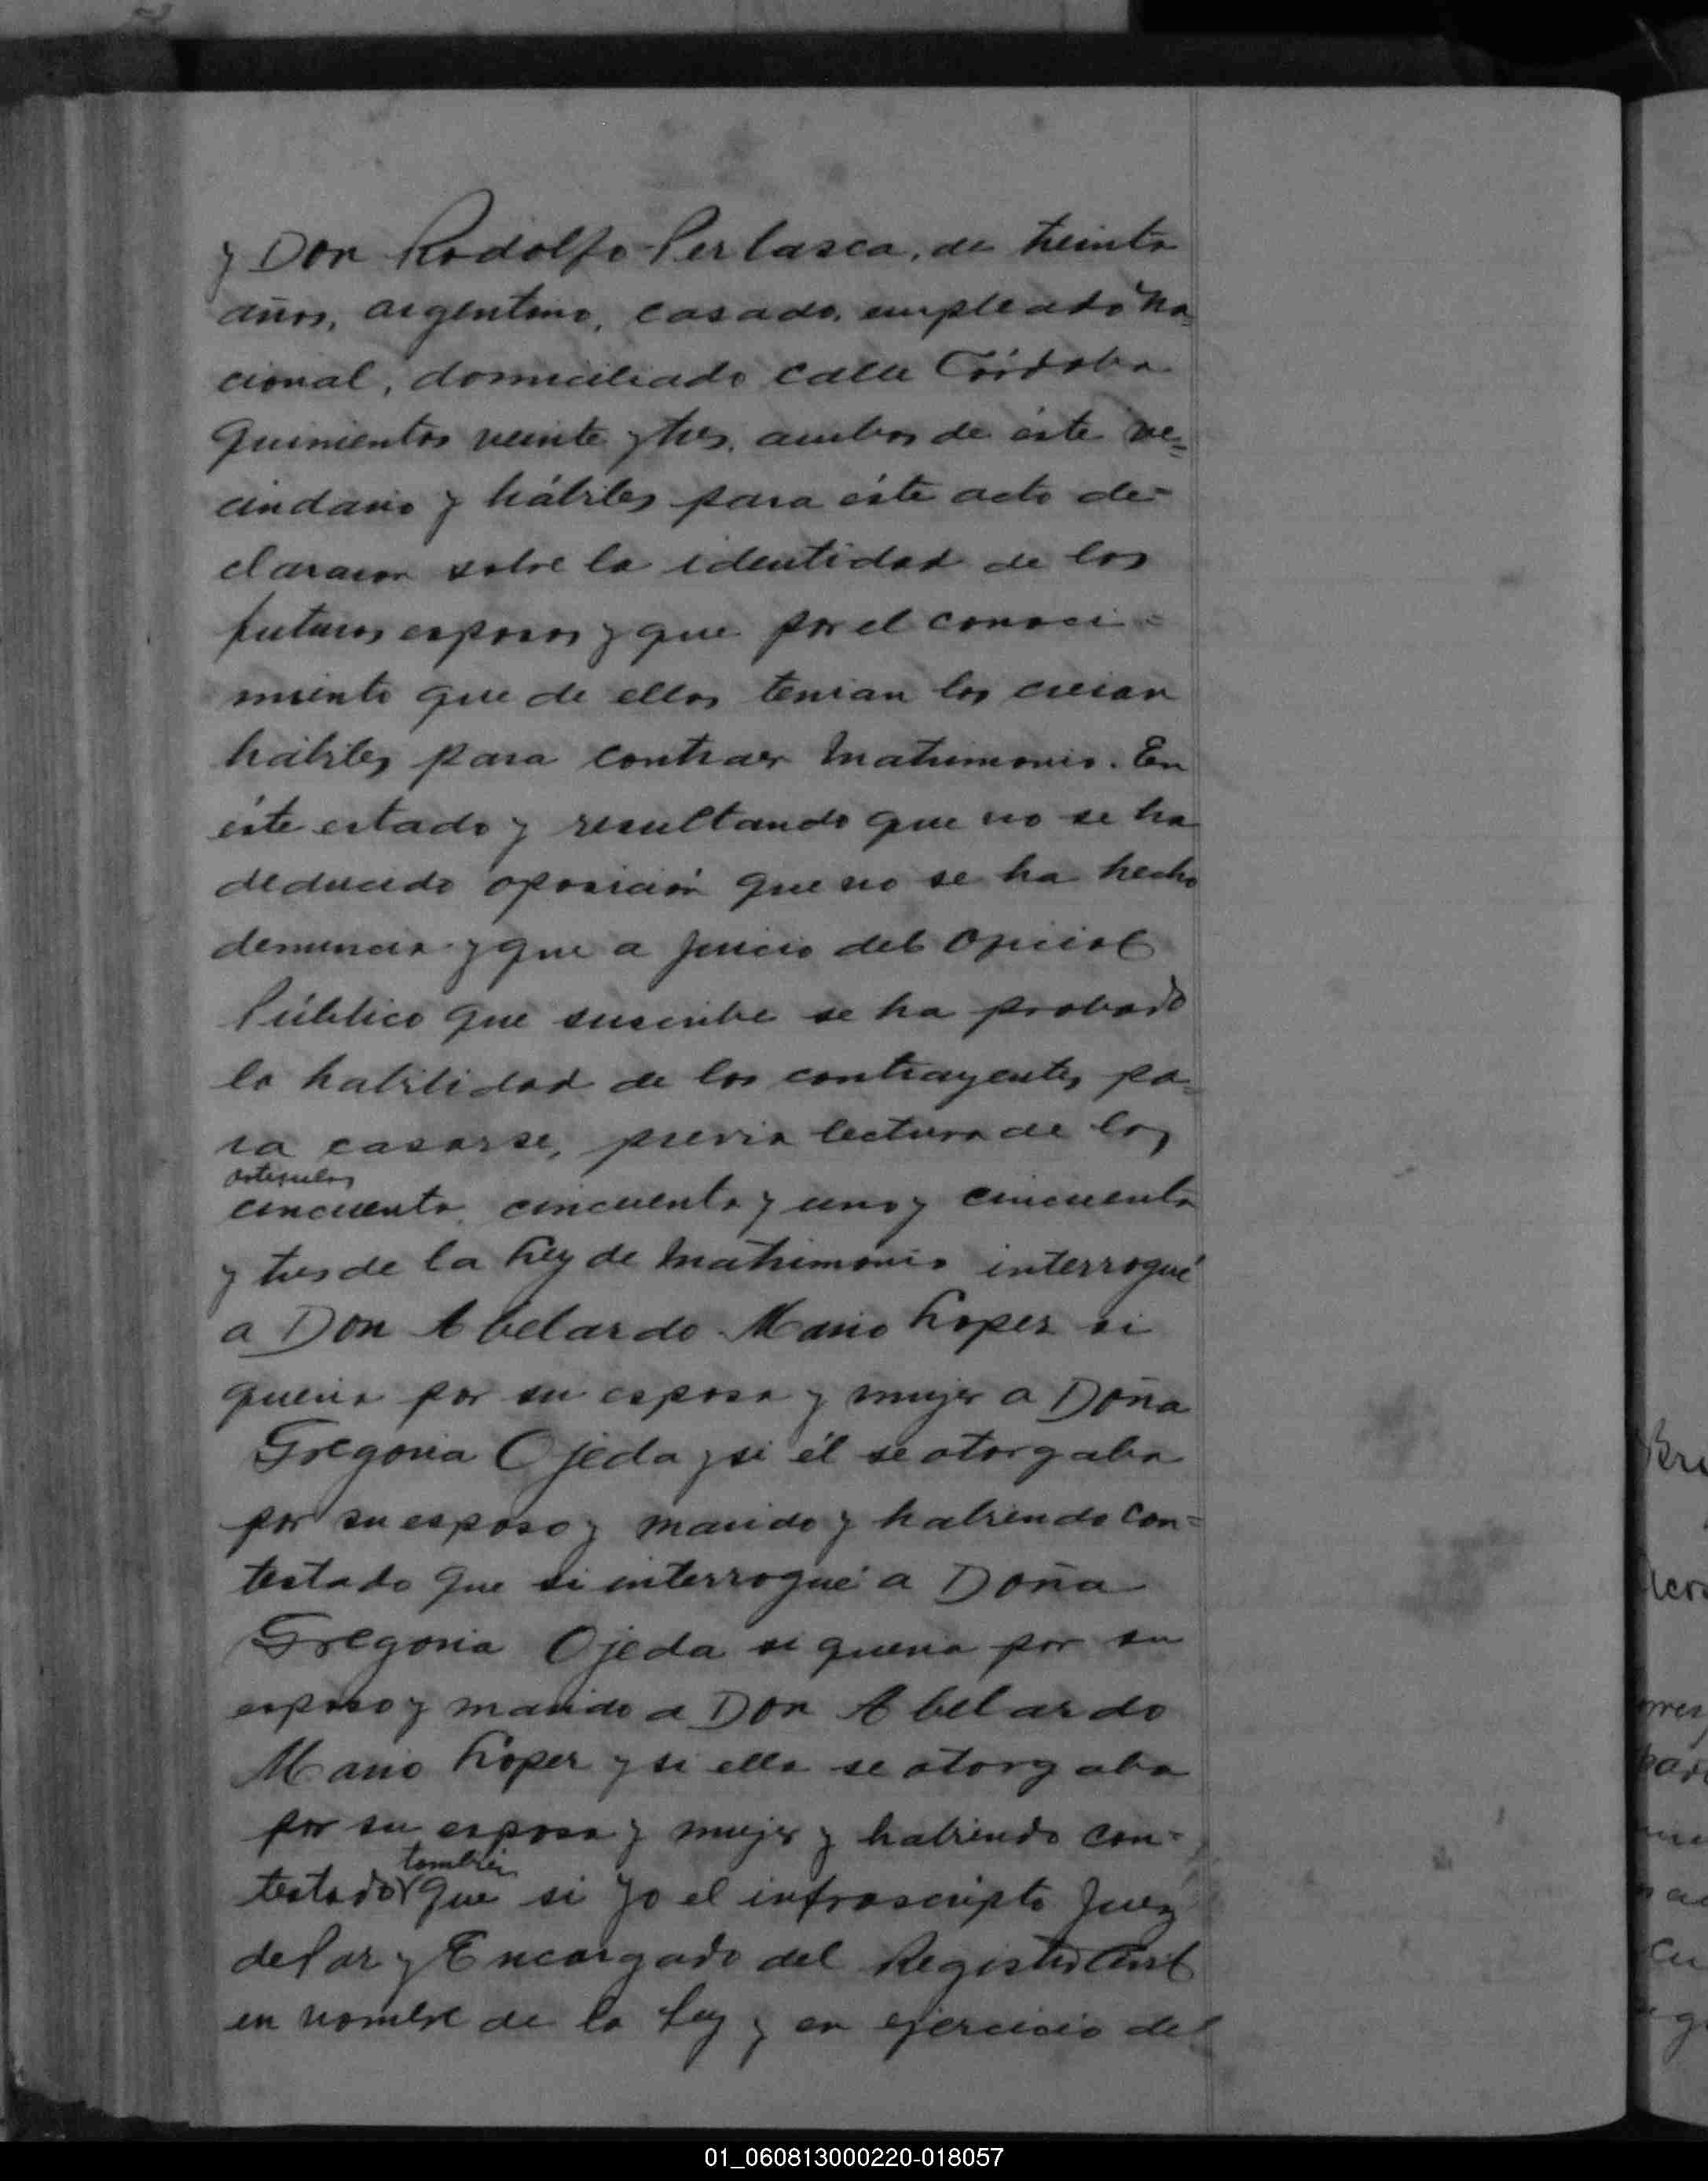 y Don Rodolfo Perlasca, de treinta
años, argentino, casado, empleado Na=
cional, domiciliado calle Córdoba
quinientos veinte y tres, ambos de éste ve=
cindario y hábiles para éste acto de=
claran sobre la identidad de los
futuros esposos y que por el conoci=
miento que de ellos tenian los creian
hábiles para contraer Matrimonio. En
éste estado y resultando que no se ha
deducido oposición que no se ha hecho
denuncia y que a juicio del Oficial
Público que suscribe se ha probado
la habilidad de los contrayentes pa=
ra casarse, previa lectura de los
articulos
cincuenta, cincuenta y uno y cincuenta
y tres de la Ley de Matrimonio interrogué
a Don Abelardo Mario Lopez si
queria por su esposa y mujer a Doña
Gregoria Ojeda y si él se otorgaba
por su esposo y marido y habiendo con=
testado que si interrogué a Doña
Gregoria Ojeda si queria por su
esposo y marido a Don Abelardo
Mario López y si ella se otorgaba
por su esposa y mujer y habiendo con=
tambien
testado que si yo el infrascripto Juez
de Paz y Encargado del Registro Civil
en nombre de la Ley y en ejercicio del
01_060813000220-018057